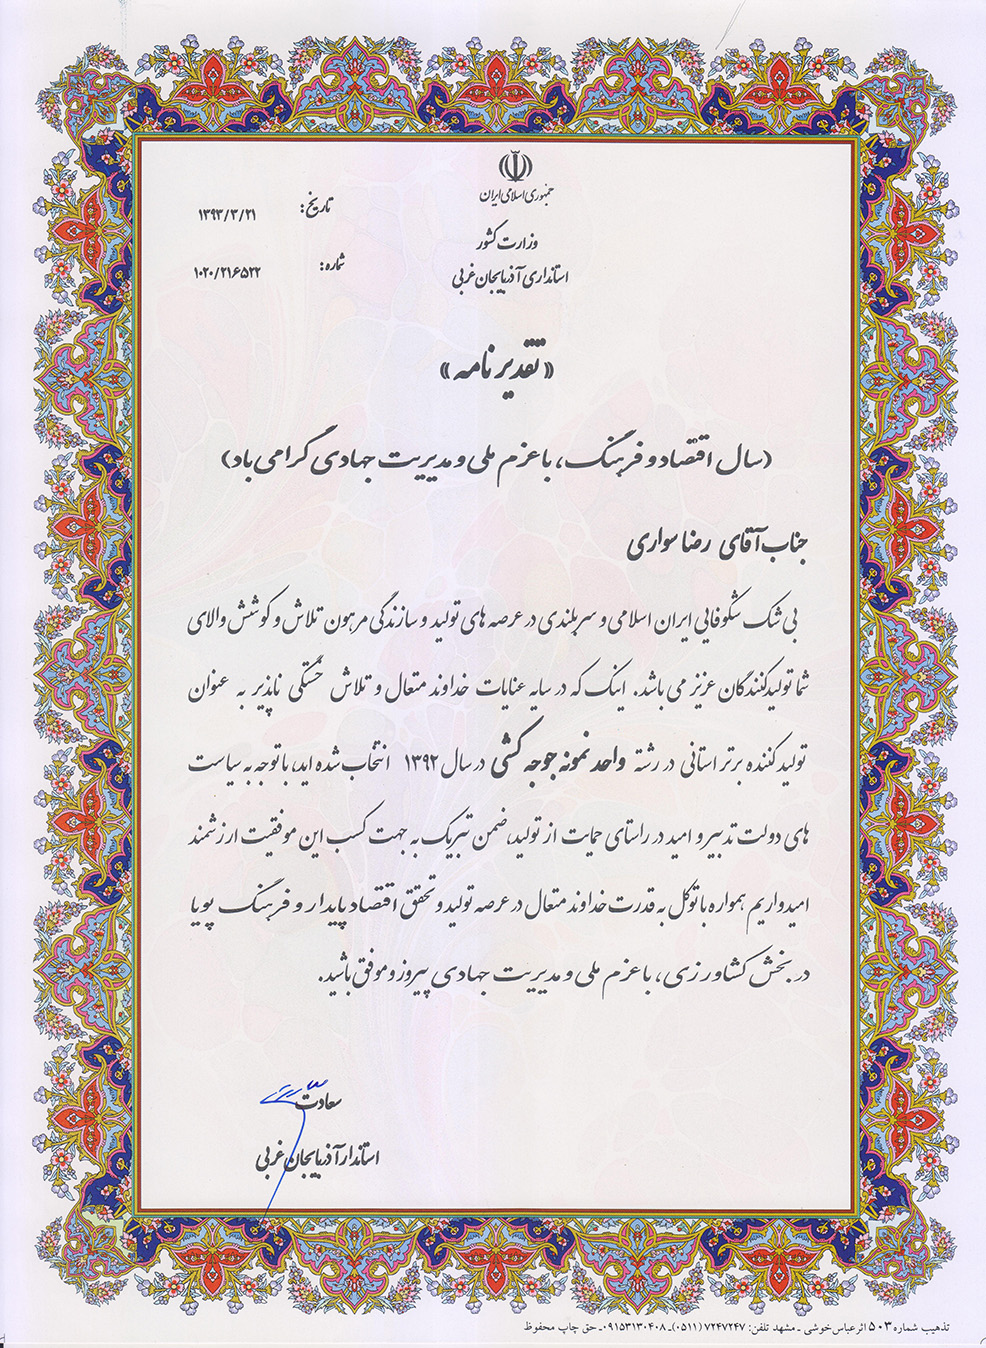 جمهوری اسلامی ایران
وزارت کشور
استانداری آذربایجان غربی
تاریخ: ۱۳۹۳/۳/۲۱
شماره: ۱۰۲۰/۲۱۶۵۲۲
« تقدیر نامه »
(سال اقتصاد و فرهنگ، با عزم ملی و مدیریت جهادی گرامی باد)
جناب آقای رضا سواری
بی شک شکوفایی ایران اسلامی و سربلندی در عرصه های تولید و سازندگی مرهون تلاش و کوشش والای
شما تولیدکنندگان عزیز می باشد. اینک که در سایه عنایات خداوند متعال و تلاش خستگی ناپذیر به عنوان
تولید کننده برتر استانی در رشته واحد نمونه جوجه کشی در سال ۱۳۹۲ انتخاب شده اید، با توجه به سیاست
های دولت تدبیر و امید در راستای حمایت از تولید، ضمن تبریک به جهت کسب این موفقیت ارزشمند
امیدواریم همواره با توکل به قدرت خداوند متعال در عرصه تولید و تحقق اقتصاد پایدار و فرهنگ پویا
در بخش کشاورزی، با عزم ملی و مدیریت جهادی پیروز و موفق باشید.
سعادت
استاندار آذربایجان غربی
تذهیب شماره ۵۰۳ اثر عباس خوشی ـ مشهد تلفن: ۷۲۴۷۲۴۷ (۰۵۱۱)ـ ۰۹۱۵۳۱۳۰۴۰۸ـ حق چاپ محفوظ